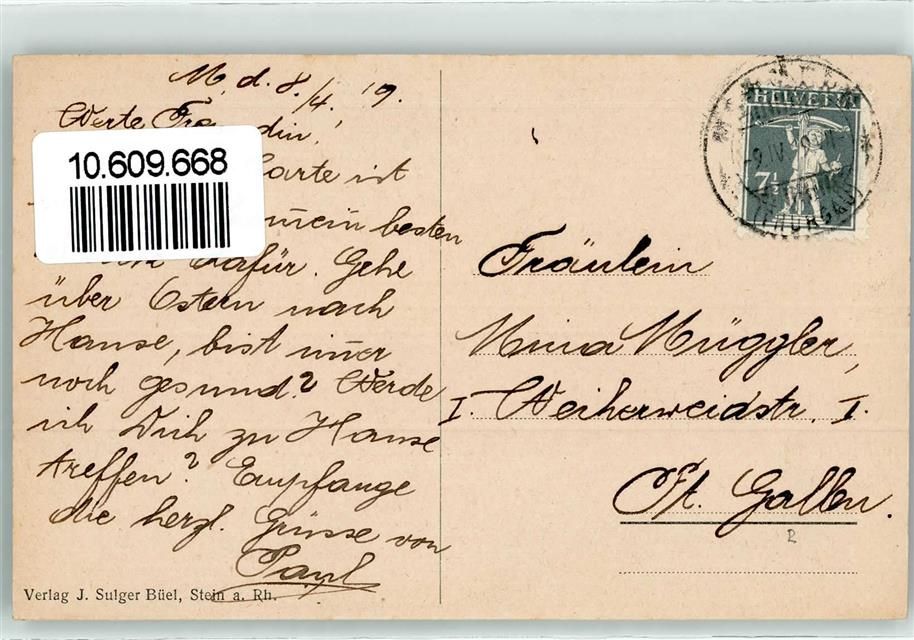 M. d. 8./4. '9.
Werte
10.609.668
Karte ist
mein besten
dafür. Gehe
über Ostern nach
Hause, bist im̄er
noch gesund? Werde
ich Dich zu Hause
treffen? Empfange
die herzl. Grüsse von
Paul
Verlag J. Sulger Büel, Stein a. Rh.
HELVETIA
7½
(THURGAU)
Fräulein
Mina Müggler,
I. Weiherweidstr. I.
St. Gallen.